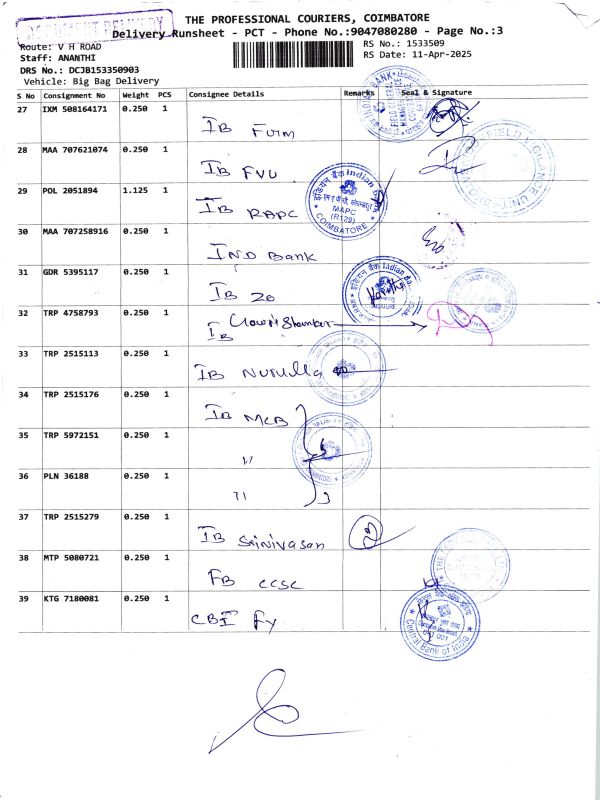 ACCOUNT DELIVERY
THE PROFESSIONAL COURIERS, COIMBATORE
Delivery Runsheet - PCT - Phone No.:9047080280 - Page No.:3
Route: V H ROAD
RS No.: 1533509
Staff: ANANTHI
RS Date: 11-Apr-2025
DRS No.: DCJB153350903
Vehicle: Big Bag Delivery
S No Consignment No Weight PCS Consignee Details Remarks Seal & Signature
27 IXM 508164171 0.250 1
IB
28 MAA 707621074 0.250 1
IB FVU
29 POL 2051894 1.125 1
IB RAPC
इंडियन बैंक Indian
MAPC
(R129)
COIMBATORE
30 MAA 707258916 0.250 1
IND Bank
31 GDR 5395117 0.250 1
IB ZO
इंडियन बैंक Indian
32 TRP 4758793 0.250 1
IB Gowri Shankar
33 TRP 2515113 0.250 1
IB Nurulla
34 TRP 2515176 0.250 1
IB MCB
35 TRP 5972151 0.250 1
11
36 PLN 36188 0.250 1
11
37 TRP 2515279 0.250 1
IB Srinivasan
38 MTP 5080721 0.250 1
FB CCSC
39 KTG 7180081 0.250 1
CBI Fy
Central Bank of India